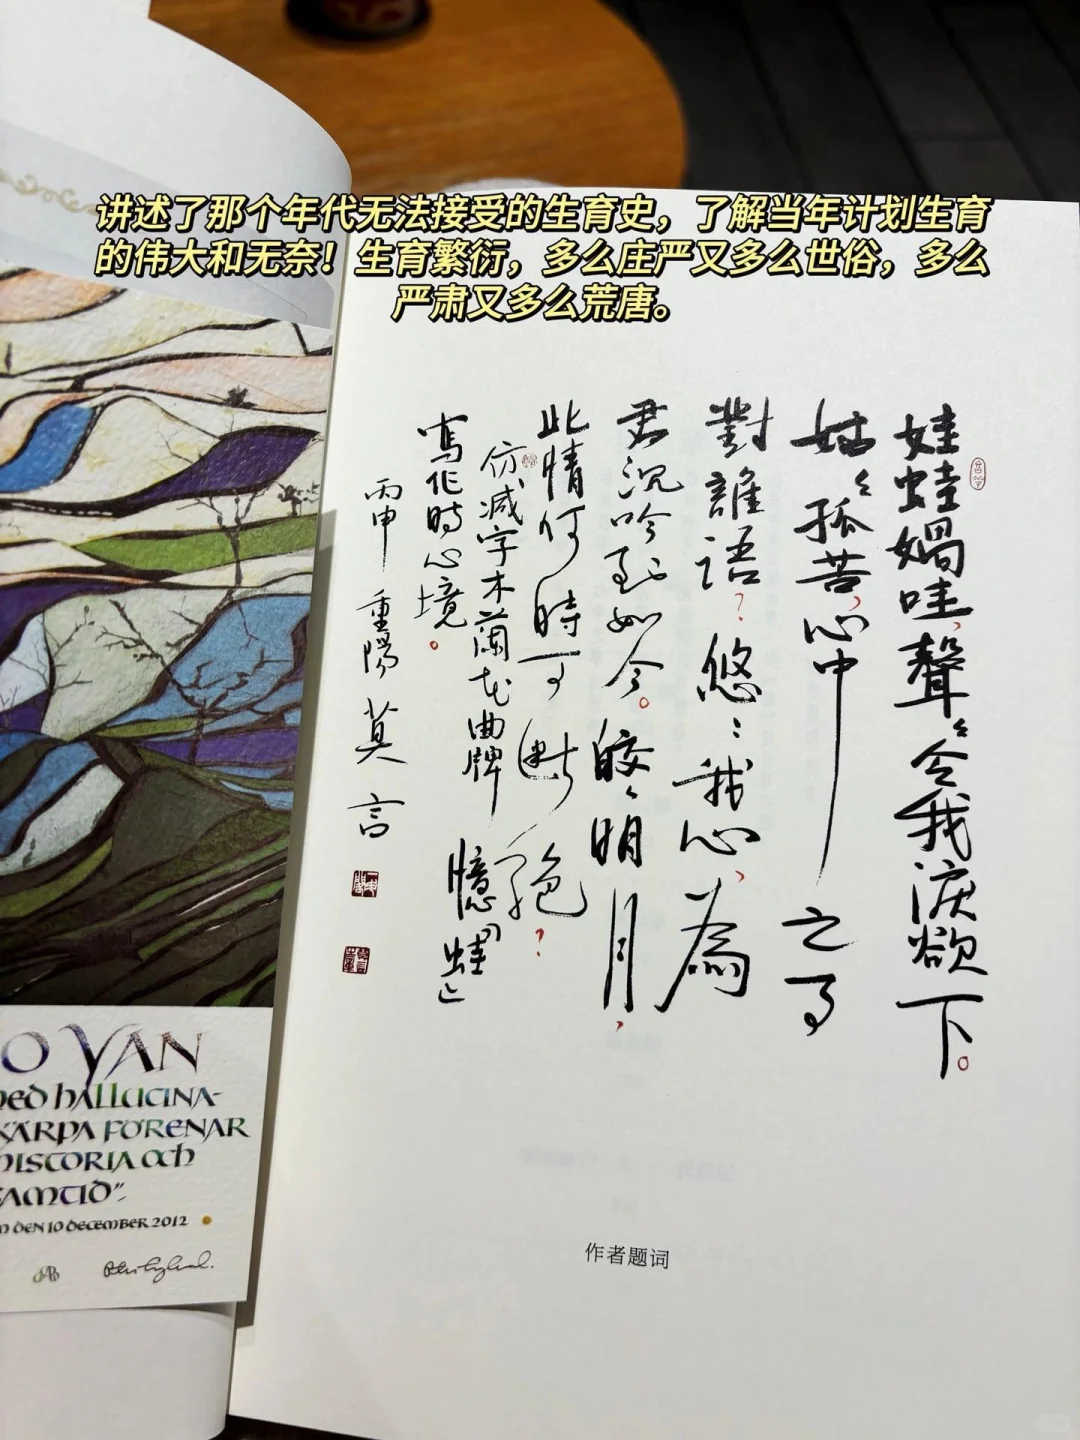 讲述了那个年代无法接受的生育史，了解当年计划生育
的伟大和无奈！生育繁衍，多么庄严又多么世俗，多么
严肃又多么荒唐。
娃蛙媧哇，聲々令我淚欲下。
姑々孤苦，心中之事
對誰語？悠々我心，為
君沉吟到如今。皎々明月，
此情何時可斷絕？
仿減字木蘭花曲牌憶「蛙」
寫作時心境。
丙申重陽莫言
作者题词
O YAN
DED HALLUCINA-
KARPA FÖRENAR
HISTORIA OCH
SAMTID”.
DEN 10 DECEMBER 2012